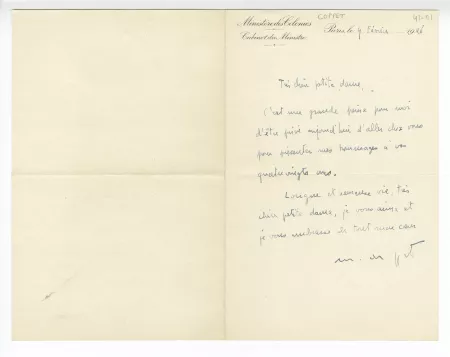 COPPET
Ministère des Colonies
Cabinet du Ministre
Paris, le 9 février 1936
Très chère petite dame,
C'est une grande peine pour moi
d'être privé aujourd'hui d'aller chez vous
pour présenter mes hommages à vos
quatre vingts ans.
Longue et heureuse vie, très
chère petite dame, je vous aime et
je vous embrasse de tout mon cœur
m. de